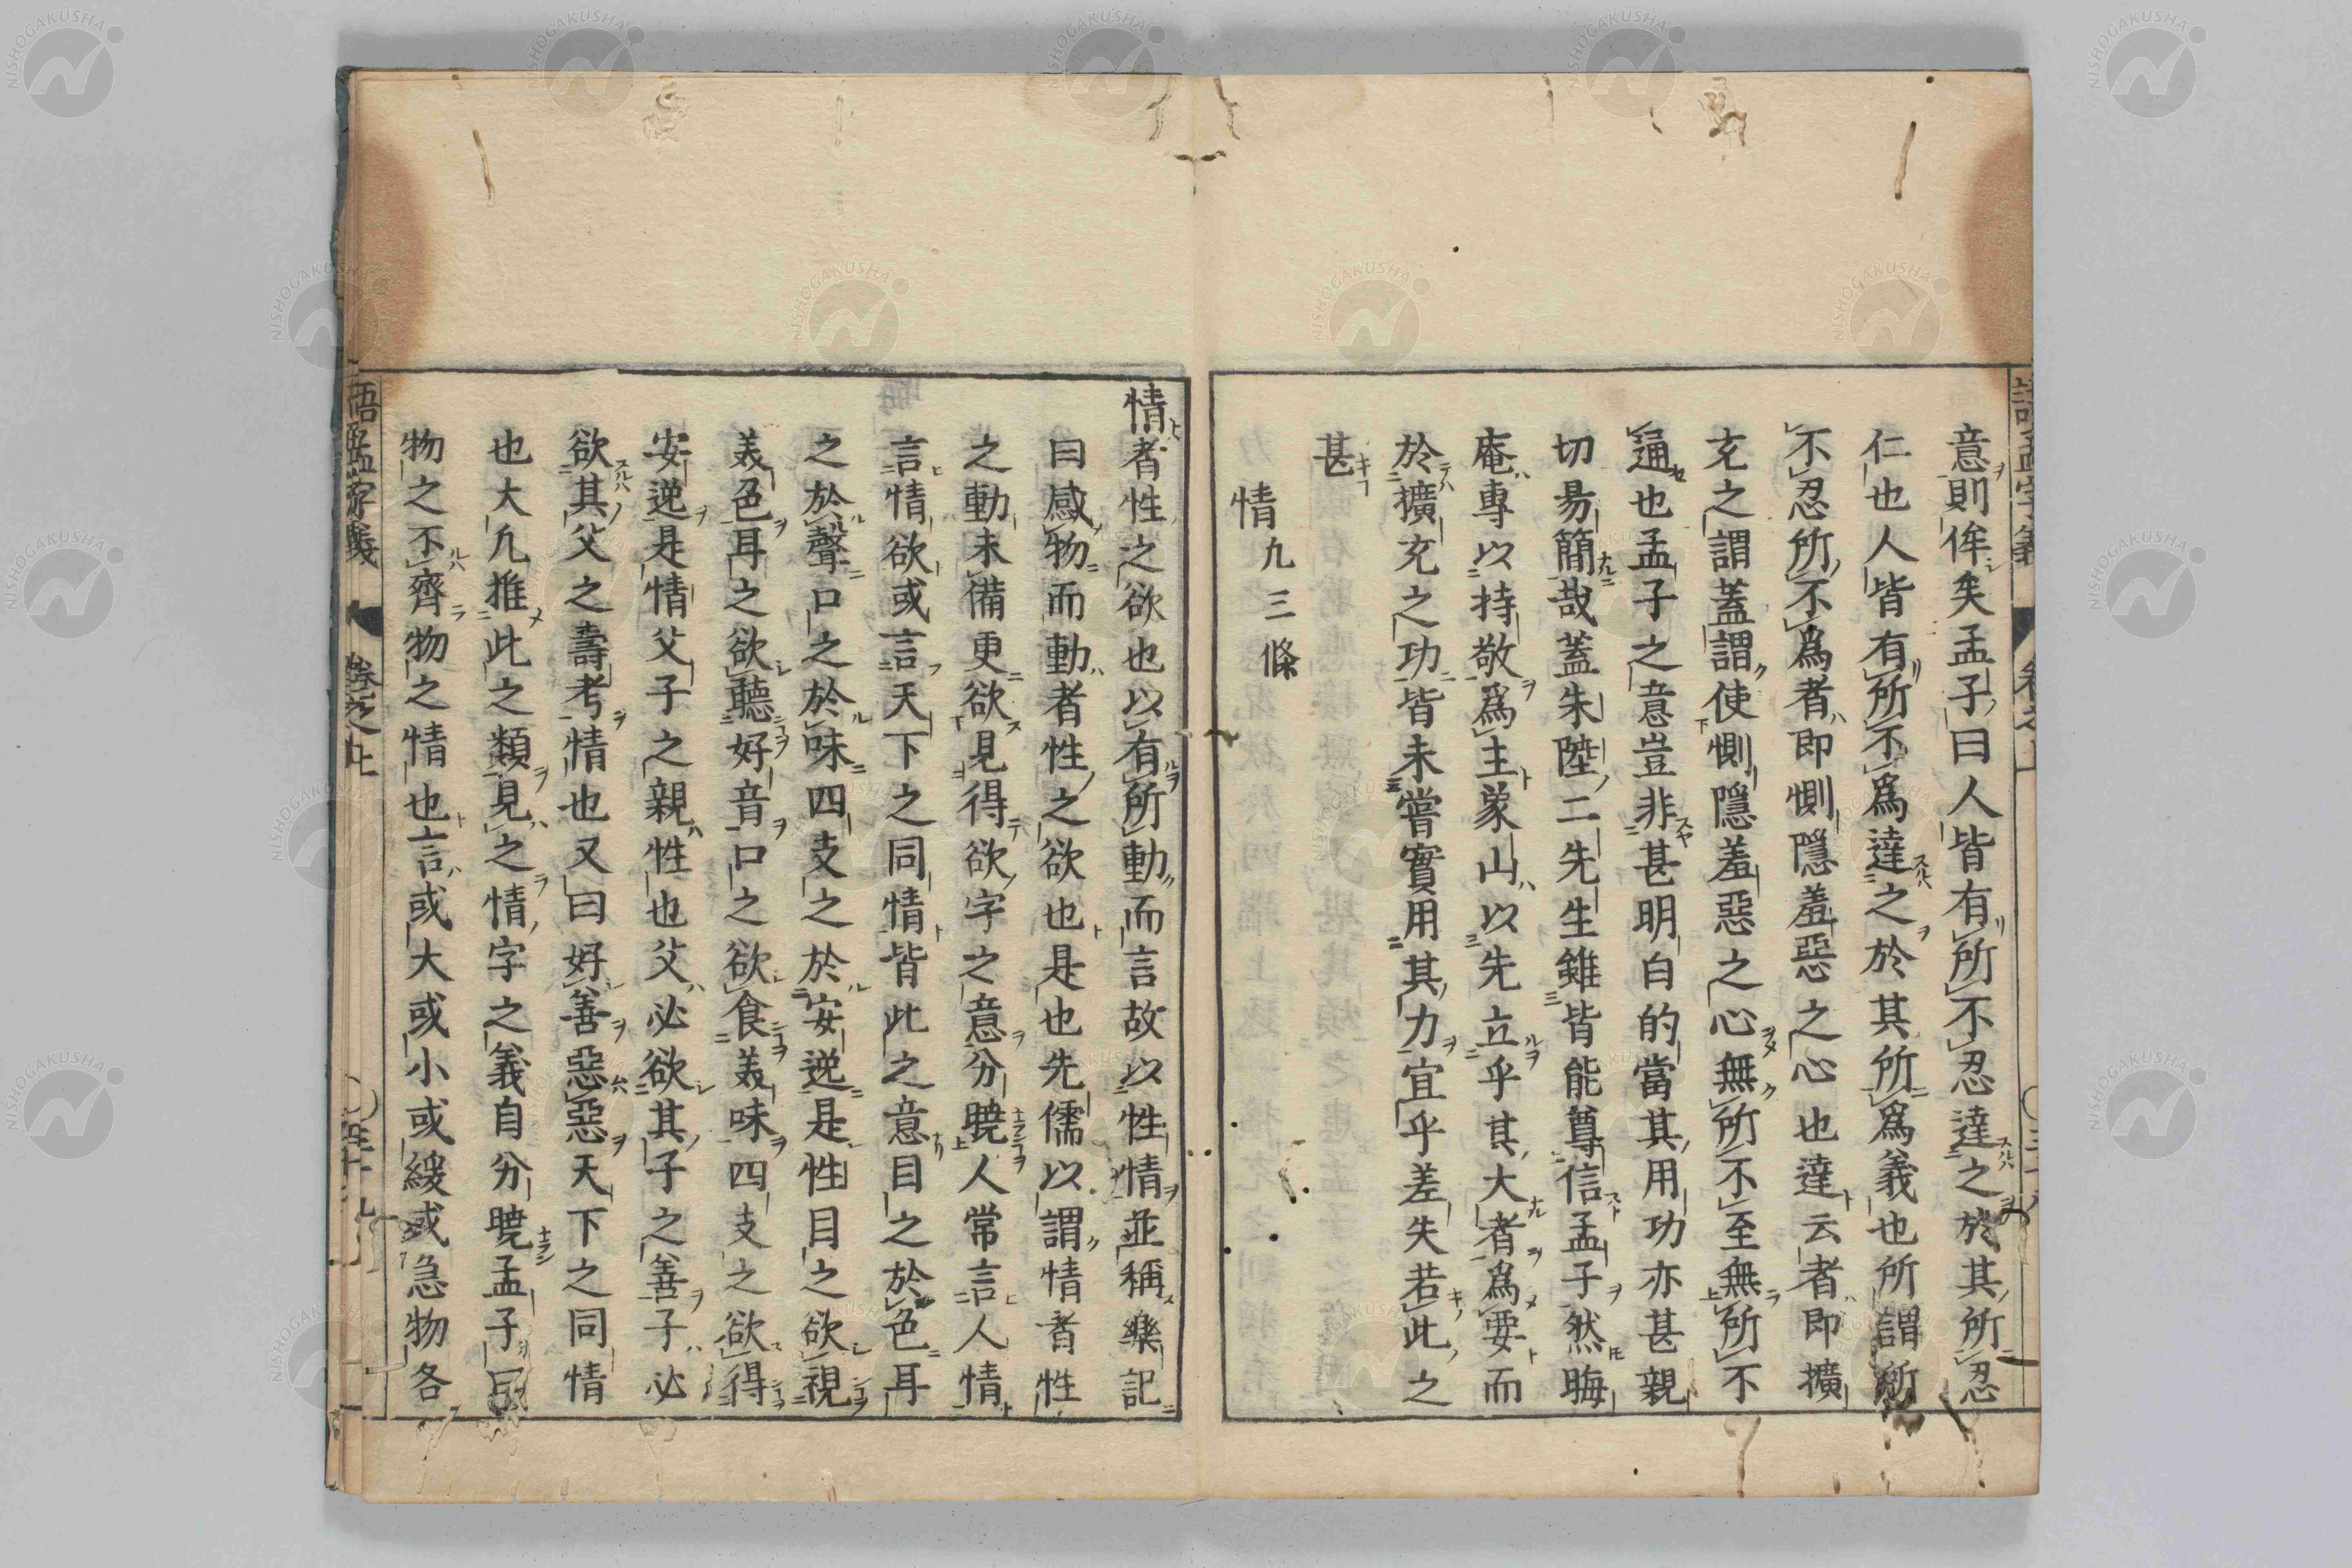 意則侔矣孟子曰人皆有所不忍達之於其所忍
仁也人皆有所不爲達之於其所爲義也所謂所
不忍所不爲者即惻隱羞惡之心也達云者即擴
充之謂蓋謂使惻隱羞惡之心無所不至無所不
通也孟子之意豈非甚明白的當其用功亦甚親
切易簡哉蓋朱陸二先生雖皆能尊信孟子然晦
庵專以持敬爲主象山以先立乎其大者爲要而
於擴充之功皆未嘗實用其力宜乎差失若此之
甚
情凡三條
情者性之欲也以有所動而言故以性情並稱樂記
曰感物而動者性之欲也是也先儒以謂情者性
之動未備更欲見得欲字之意分曉人常言人情
言情欲或言天下之同情皆此之意目之於色耳
之於聲口之於味四支之於安逸是性目之欲視
美色耳之欲聽好音口之欲食美味四支之欲得
安逸是情父子之親性也父必欲其子之善子必
欲其父之壽考情也又曰好善惡惡天下之同情
也大凡推此之類見之情字之義自分曉孟子曰
物之不齊物之情也言或大或小或緩或急物各
語孟字義 卷之上
NISHOGAKUSHA